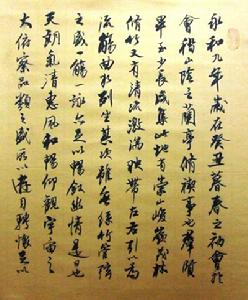 永和九年歲在癸丑暮春之初會於
會稽山陰之蘭亭脩禊事也羣賢
畢至少長咸集此地有崇山峻嶺茂林
脩竹又有清流激湍映帶左右引以為
流觴曲水列坐其次雖無絲竹管弦
之盛一觴一詠亦足以暢敘幽情是日也
天朗氣清惠風和暢仰觀宇宙之
大俯察品類之盛所以遊目騁懷足以